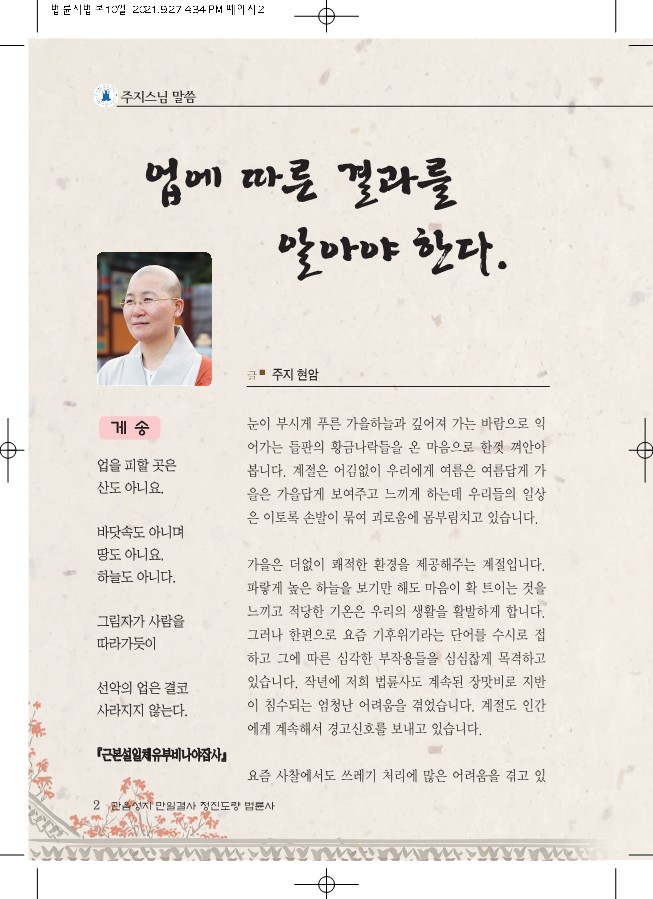 법륜사법보10월 2021.9.27 4:34 PM 페이지2
주지스님 말씀
업에 따른 결과를
알아야 한다.
글 ■ 주지 현암
게 송
업을 피할 곳은
산도 아니요.
바닷속도 아니며
땅도 아니요.
하늘도 아니다.
그림자가 사람을
따라가듯이
선악의 업은 결코
사라지지 않는다.
『근본설일체유부비나야잡사』
눈이 부시게 푸른 가을하늘과 깊어져 가는 바람으로 익
어가는 들판의 황금나락들을 온 마음으로 한껏 껴안아
봅니다. 계절은 어김없이 우리에게 여름은 여름답게 가
을은 가을답게 보여주고 느끼게 하는데 우리들의 일상
은 이토록 손발이 묶여 괴로움에 몸부림치고 있습니다.
가을은 더없이 쾌적한 환경을 제공해주는 계절입니다.
파랗게 높은 하늘을 보기만 해도 마음이 확 트이는 것을
느끼고 적당한 기온은 우리의 생활을 활발하게 합니다.
그러나 한편으로 요즘 기후위기라는 단어를 수시로 접
하고 그에 따른 심각한 부작용들을 심심찮게 목격하고
있습니다. 작년에 저희 법륜사도 계속된 장맛비로 지반
이 침수되는 엄청난 어려움을 겪었습니다. 계절도 인간
에게 계속해서 경고신호를 보내고 있습니다.
요즘 사찰에서도 쓰레기 처리에 많은 어려움을 겪고 있
2 관음성지 만일결사 정진도량 법륜사